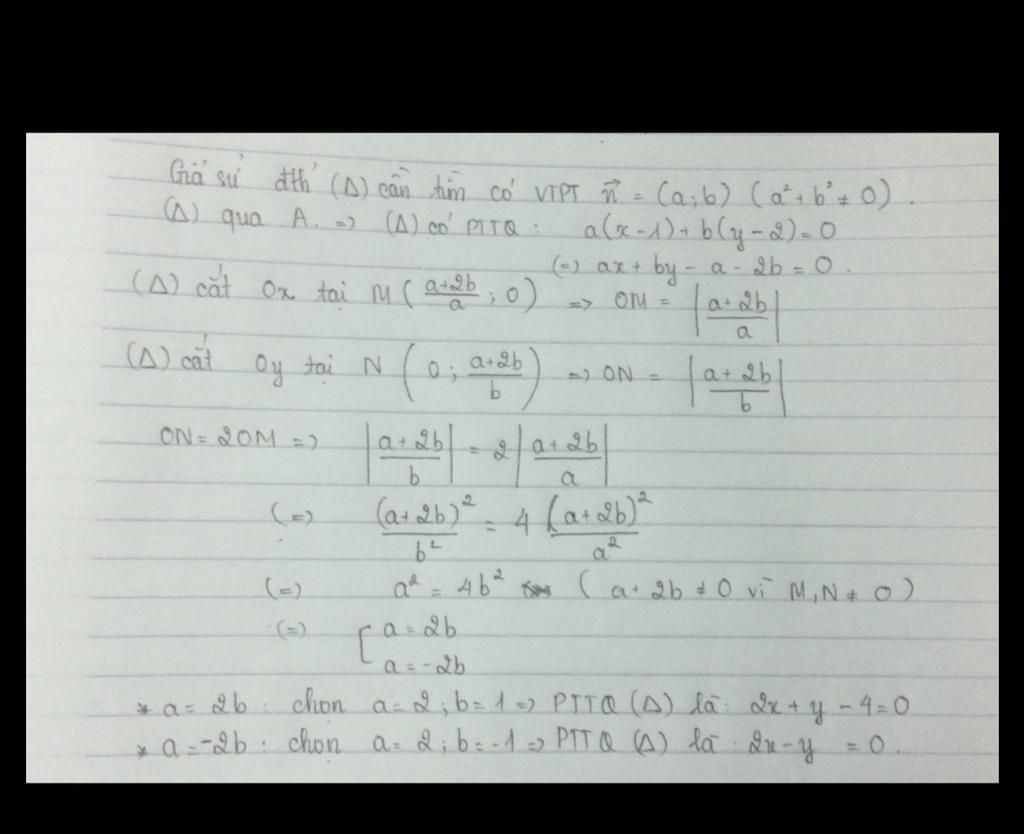 Giả sử đth' (Δ) cần tìm có VTPT n⃗ = (a; b) (a² + b² ≠ 0).
(Δ) qua A. => (Δ) có PTTQ: a(x-1)+b(y-2)=0
(=) ax + by - a - 2b = 0.
(Δ) cắt Ox tại M((a+2b)/a ; 0) => OM = |(a+2b)/a|
(Δ) cắt Oy tại N (0; (a+2b)/b) => ON = |(a+2b)/b|
ON=2OM => |(a+2b)/b| = 2|(a+2b)/a|
(=) (a+2b)²/b² = 4 (a+2b)²/a²
(=) a² = 4b² (a+2b ≠ 0 vì M,N ≠ O)
(=) [ a = 2b
a = -2b
* a = 2b: chọn a = 2; b = 1 => PTTQ (Δ) là: 2x + y - 4 = 0
* a = -2b: chọn a = 2; b = -1 => PTTQ (Δ) là: 2x - y = 0.